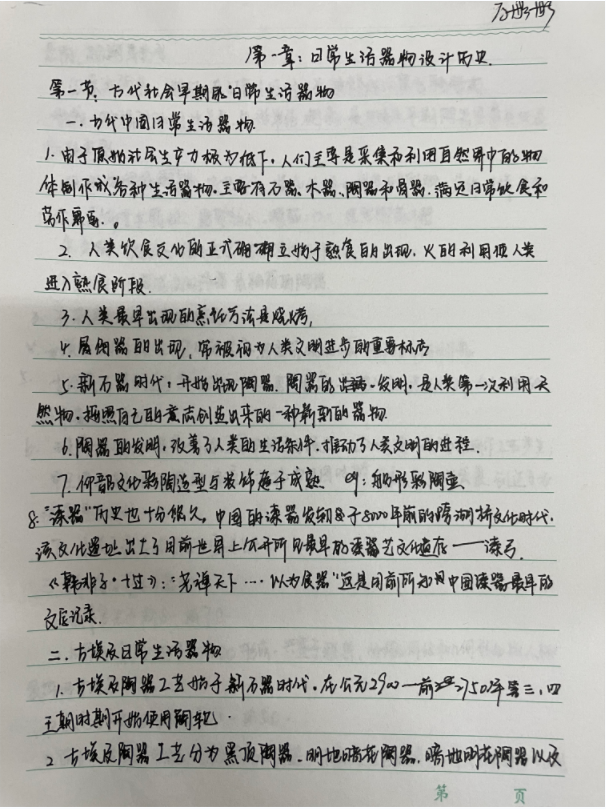 第一章：日常生活器物设计历史
第一节：古代社会早期的日常生活器物
一.古代中国日常生活器物
1.由于原始社会生产力极为低下，人们主要是采集和利用自然界中的物
体制作成各种生活器物，主要有石器、木器、陶器和骨器.满足日常饮食和
劳作需要。
2.人类饮食文化的正式确立始于熟食的出现.火的利用使人类
进入熟食阶段.
3.人类最早出现的烹饪方法是烧烤,
4.陶器的出现，常被视为人类文明进步的重要标志
5.新石器时代，开始出现陶器.陶器的发明，是人类第一次利用天
然物，按照自己的意志创造出来的一种崭新的器物.
6.陶器的发明，改善了人类的生活条件.推动了人类文明的进程.
7.仰韶文化彩陶造型与装饰趋于成熟 例：船形彩陶壶
8:“漆器”历史也十分悠久，中国的漆器发明于8000年前的跨湖桥文化时代.
该文化遗址出土了目前世界上公开所见最早的漆器艺文化遗存——漆弓.
《韩非子·十过》：“尧禅天下…以为食器”这是目前所知中国漆器最早的
文字记录.
二.古埃及日常生活器物
1.古埃及陶器工艺始于新石器时代，在公元2900—前2750年第三、四
王朝时期开始使用陶轮.
2.古埃及陶器工艺分为黑顶陶器.明地暗花陶器.暗地明花陶器以及
第 页